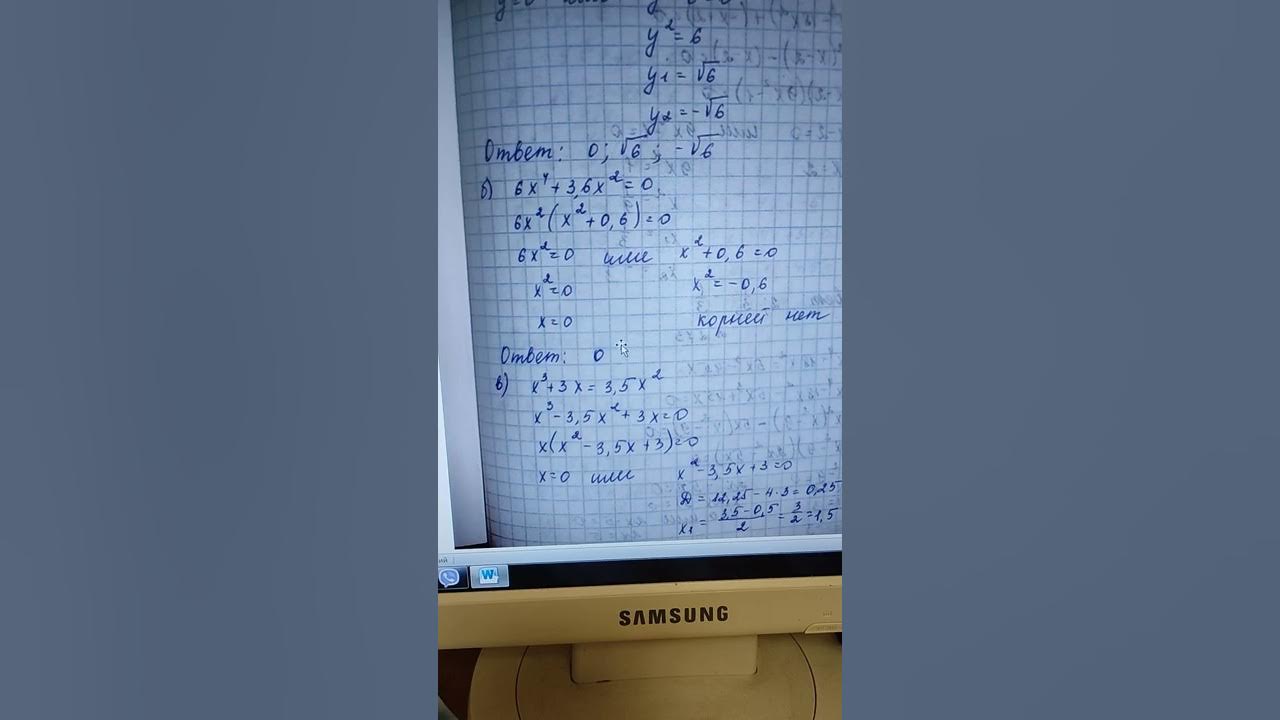 y² = 6
y₁ = √6
y₂ = -√6
Ответ: 0; √6; -√6
б) 6x⁴ + 3,6x² = 0
6x² (x² + 0,6) = 0
6x² = 0 или x² + 0,6 = 0
x² = 0 x² = -0,6
x = 0 корней нет
Ответ: 0
в) x³ + 3x = 3,5x²
x³ - 3,5x² + 3x = 0
x(x² - 3,5x + 3) = 0
x = 0 или x² - 3,5x + 3 = 0
Д = 12,25 - 4·3 = 0,25
x₁ = (3,5 - 0,5)/2 = 3/2 = 1,5
W
SAMSUNG